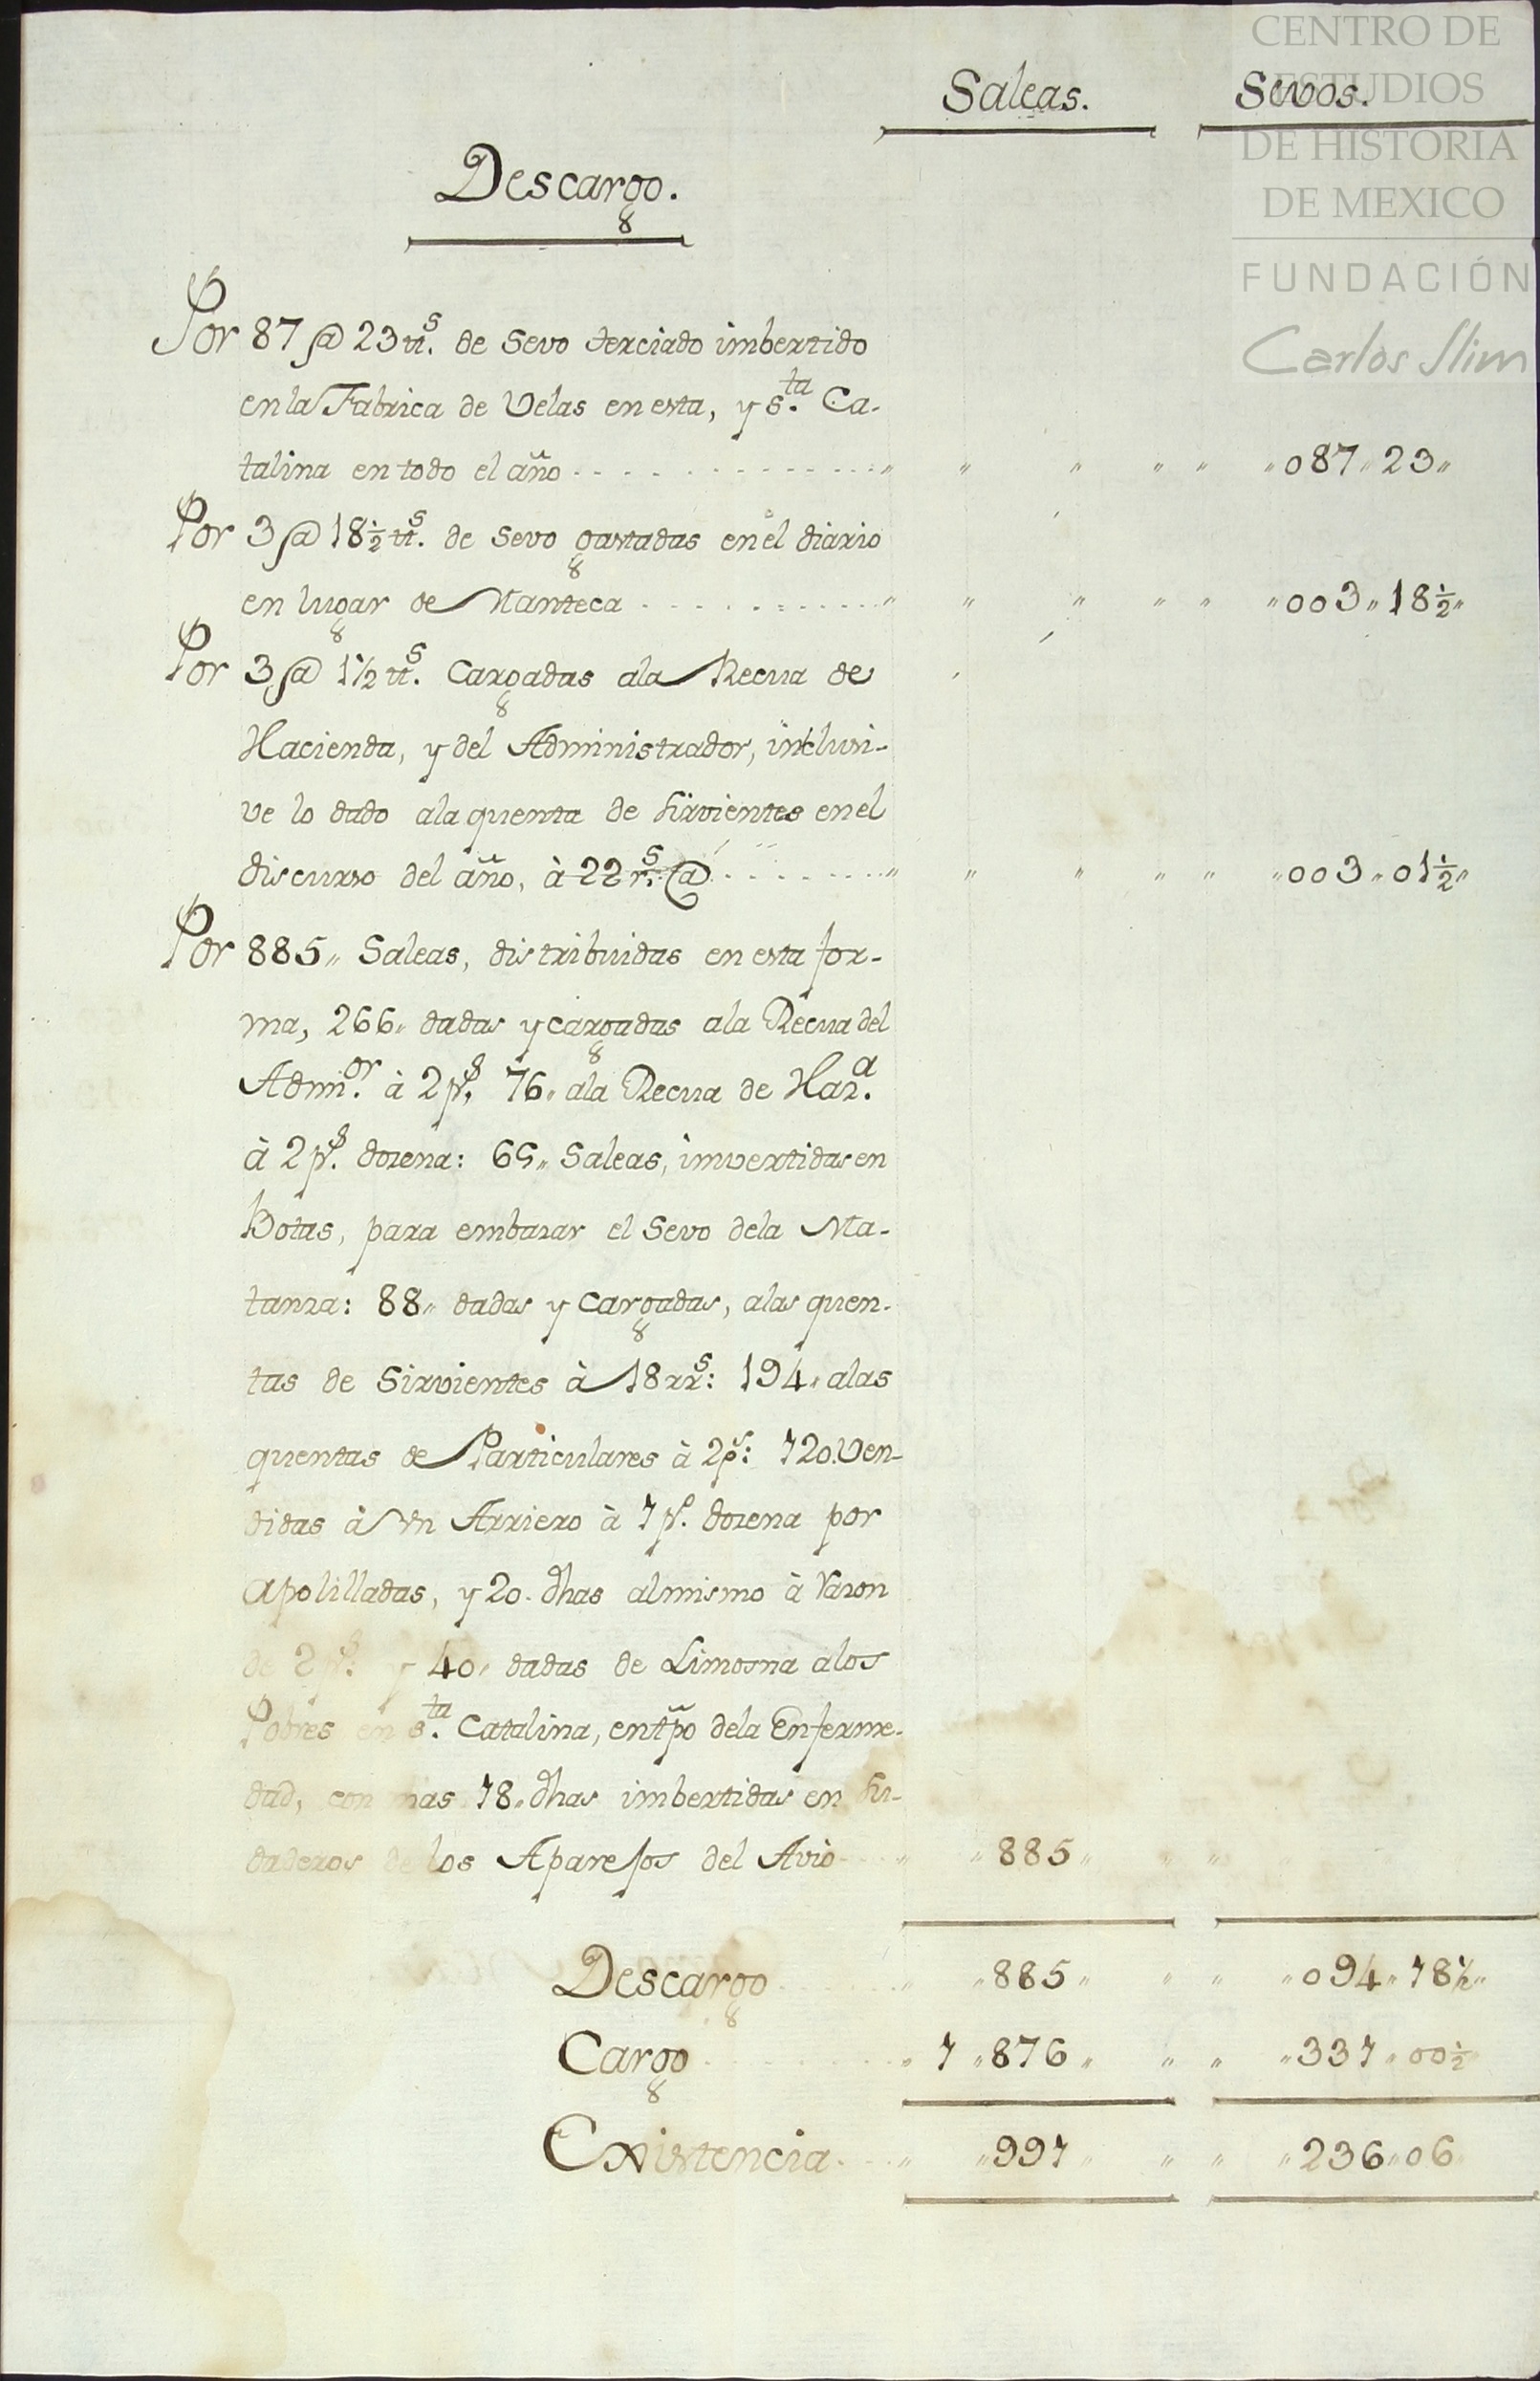 CENTRO DE
ESTUDIOS
DE HISTORIA
DE MEXICO
FUNDACIÓN
Carlos Slim
Saleas. Sevos.
Descargo.
Por 87 @ 23 tt.s de Sevo terciado imbertido
en la Fabrica de Velas en esta, y S.ta Ca-
talina en todo el año " " " " " "087"23"
Por 3 @ 18½ tt.s de Sevo gastadas en el diario
en lugar de Manteca " " " " " "003"18½"
Por 3 @ 1½ tt.s Cargadas ala Recua de
Hacienda, y del Administrador, inclusi-
ve lo dado ala quenta de Sirvientes en el
discurso del año, à 22 r.s @ " " " " " "003"01½"
Por 885" Saleas, distribuidas en esta for-
ma, 266" dadas y cargadas ala Recua del
Adm.or à 2 p.s 76" ala Recua de Haz.a
à 2 p.s dozena: 65" Saleas, imvertidas en
Botas, para embazar el Sevo dela Ma-
tanza: 88" dadas y Cargadas, alas quen-
tas de Sirvientes à 18 rr.s: 194" alas
quentas de Particulares à 2 p.s: 120. Ven-
didas à Vn Arriero à 1 p.o dozena por
Apolilladas, y 20. dhas almismo à razon
de 2 p.s y 40" dadas de Limosna alos
Pobres en S.ta Catalina, en tpo dela Enferme-
dad, con mas 18" dhas imbertidas en Su-
daderos de los Aparejos del Avio " "885" " "
Descargo " "885" " " "094"18½"
Cargo " 1"876" " " "331"00½"
Existencia " "991" " " "236"06"